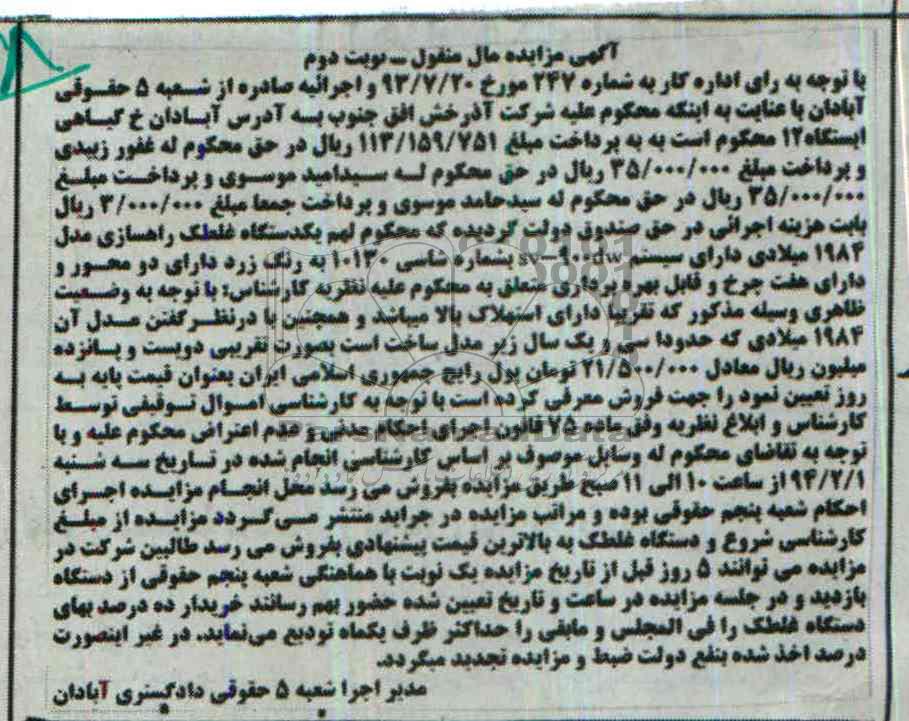 آگهی مزایده مال منقول ــ نوبت دوم
با توجه به رای اداره کار به شماره ۲۴۷ مورخ ۹۳/۷/۲۰ و اجرائیه صادره از شعبه ۵ حقوقی
آبادان با عنایت به اینکه محکوم علیه شرکت آذرخش افق جنوب به آدرس آبادان خ گیاهی
ایستگاه ۱۲ محکوم است به به پرداخت مبلغ ۱۱۳/۱۵۹/۷۵۱ ریال در حق محکوم له غفور زبیدی
و پرداخت مبلغ ۳۵/۰۰۰/۰۰۰ ریال در حق محکوم له سیدامید موسوی و پرداخت مبلغ
۳۵/۰۰۰/۰۰۰ ریال در حق محکوم له سیدحامد موسوی و پرداخت جمعا مبلغ ۳/۰۰۰/۰۰۰ ریال
بابت هزینه اجرائی در حق صندوق دولت گردیده که محکوم لهم یکدستگاه غلطک راهسازی مدل
۱۹۸۴ میلادی دارای سیستم sv-۹۰۰dw بشماره شاسی ۱۰۱۳۰ به رنگ زرد دارای دو محور و
دارای هفت چرخ و قابل بهره برداری متعلق به محکوم علیه نظریه کارشناس: با توجه به وضعیت
ظاهری وسیله مذکور که تقریبا دارای استهلاک بالا میباشد و همچنین با درنظرگفتن مدل آن
۱۹۸۴ میلادی که حدودا سی و یک سال زیر مدل ساخت است بصورت تقریبی دویست و پانزده
میلیون ریال معادل ۲۱/۵۰۰/۰۰۰ تومان پول رایج جمهوری اسلامی ایران بعنوان قیمت پایه به
روز تعیین نمود را جهت فروش معرفی کرده است با توجه به کارشناسی اموال توقیفی توسط
کارشناس و ابلاغ نظریه وفق ماده ۷۵ قانون اجرای احکام مدنی و عدم اعتراض محکوم علیه و با
توجه به تقاضای محکوم له وسایل موصوف بر اساس کارشناسی انجام شده در تاریخ سه شنبه
۹۴/۲/۱ از ساعت ۱۰ الی ۱۱ صبح طریق مزایده بفروش می رسد محل انجام مزایده اجرای
احکام شعبه پنجم حقوقی بوده و مراتب مزایده در جراید منتشر می گردد مزایده از مبلغ
کارشناسی شروع و دستگاه غلطک به بالاترین قیمت پیشنهادی بفروش می رسد طالبین شرکت در
مزایده می توانند ۵ روز قبل از تاریخ مزایده یک نوبت با هماهنگی شعبه پنجم حقوقی از دستگاه
بازدید و در جلسه مزایده در ساعت و تاریخ تعیین شده حضور بهم رسانند خریدار ده درصد بهای
دستگاه غلطک را فی المجلس و مابقی را حداکثر ظرف یکماه تودیع می‌نماید. در غیر اینصورت
درصد اخذ شده بنفع دولت ضبط و مزایده تجدید میگردد.
مدیر اجرا شعبه ۵ حقوقی دادگستری آبادان